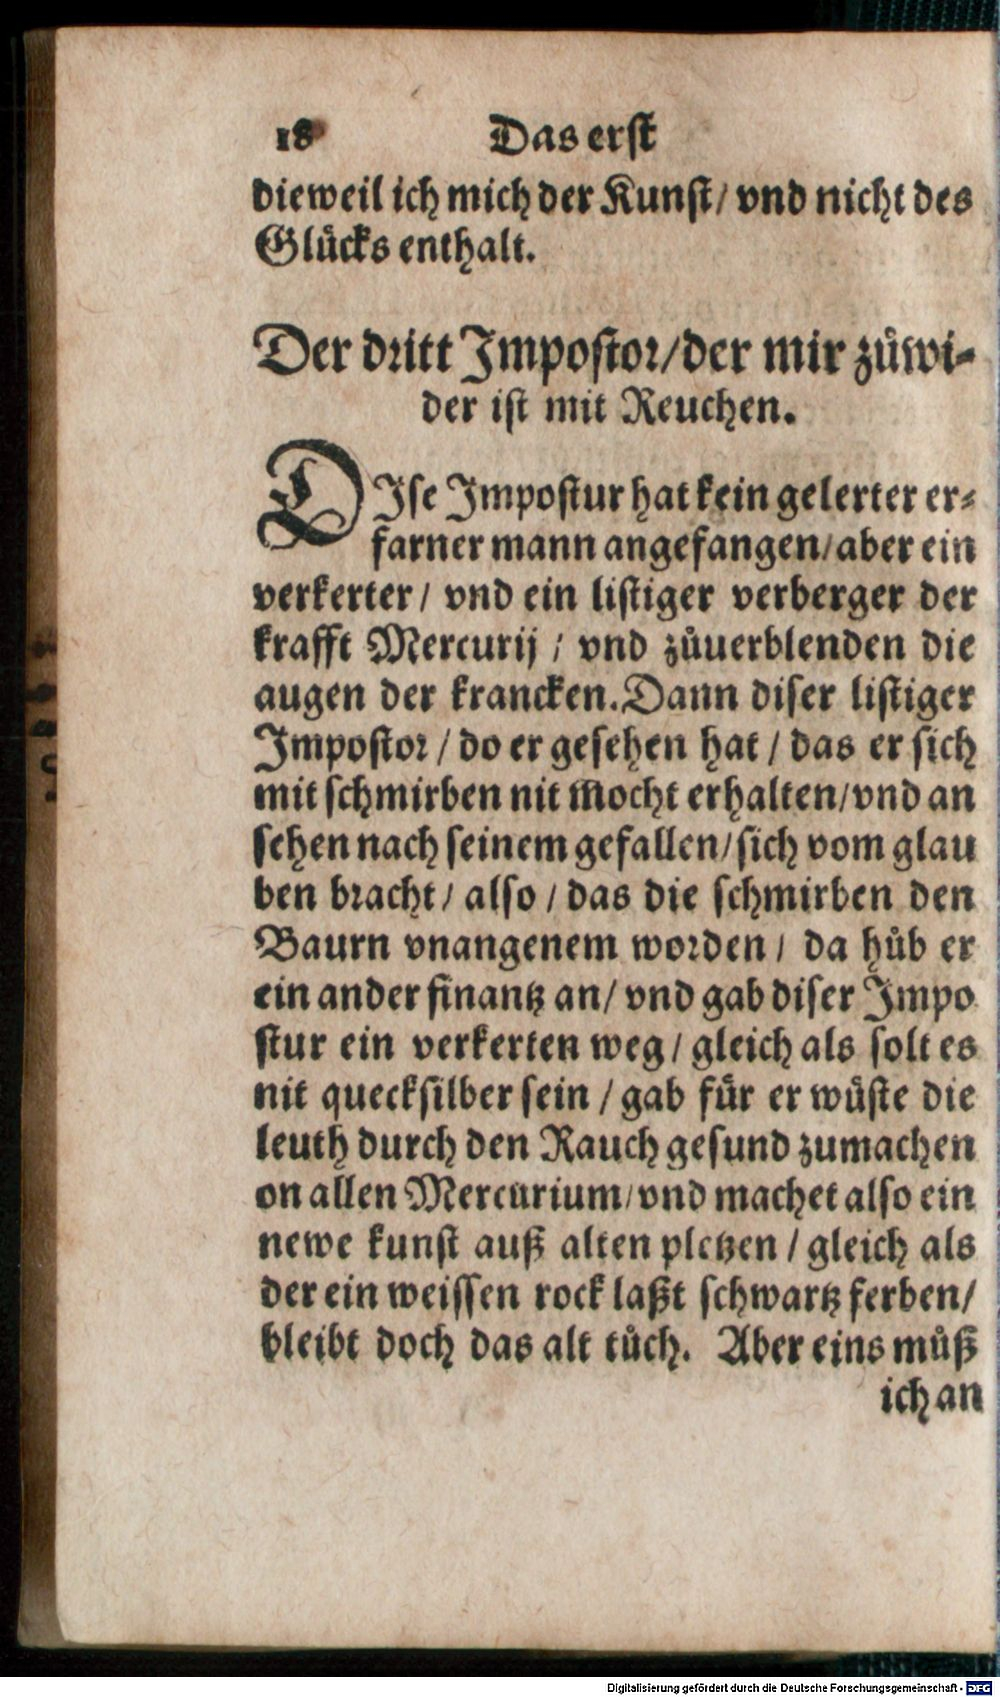 18 Das erst
dieweil ich mich der Kunst/ vnd nicht des
Glücks enthalt.
Der dritt Impostor/der mir zůwi-
der ist mit Reuchen.
DIse Impostur hat kein gelerter er-
farner mann angefangen/aber ein
verkerter/ vnd ein listiger verberger der
krafft Mercurij / vnd zůuerblenden die
augen der krancken. Dann diser listiger
Impostor / do er gesehen hat / das er sich
mit schmirben nit mocht erhalten/vnd an
sehen nach seinem gefallen/sich vom glau
ben bracht/ also / das die schmirben den
Baurn vnangenem worden / da hůb er
ein ander finantz an/ vnd gab diser Impo
stur ein verkerten weg / gleich als solt es
nit quecksilber sein / gab für er wüste die
leuth durch den Rauch gesund zumachen
on allen Mercurium/vnd machet also ein
newe kunst auß alten pletzen / gleich als
der ein weissen rock laßt schwartz ferben/
bleibt doch das alt tůch. Aber eins můß
ich an
Digitalisierung gefördert durch die Deutsche Forschungsgemeinschaft - DFG